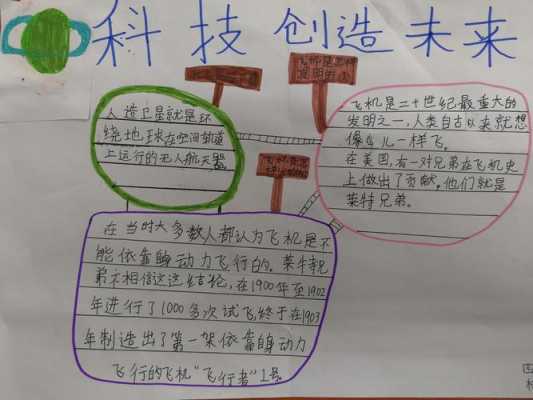 科技创造未来
飞机是怎样
发明的
人造卫星就是环
绕地球在空间轨道
上运行的无人航天器。
飞机是二十世纪最重大的
发明之一，人类自古以来就想
像鸟儿一样飞。
在美国，有一对兄弟在飞机史
上做出了贡献。他们就是
莱特兄弟。
在当时大多数人都认为飞机是不
能依靠自身动力飞行的。莱特兄
弟不相信这这结论，在1900年至1902
年进行了1000多次试飞，终于在1903
年制造出了第一架依靠自身动力
飞行的飞机“飞行者”1号。